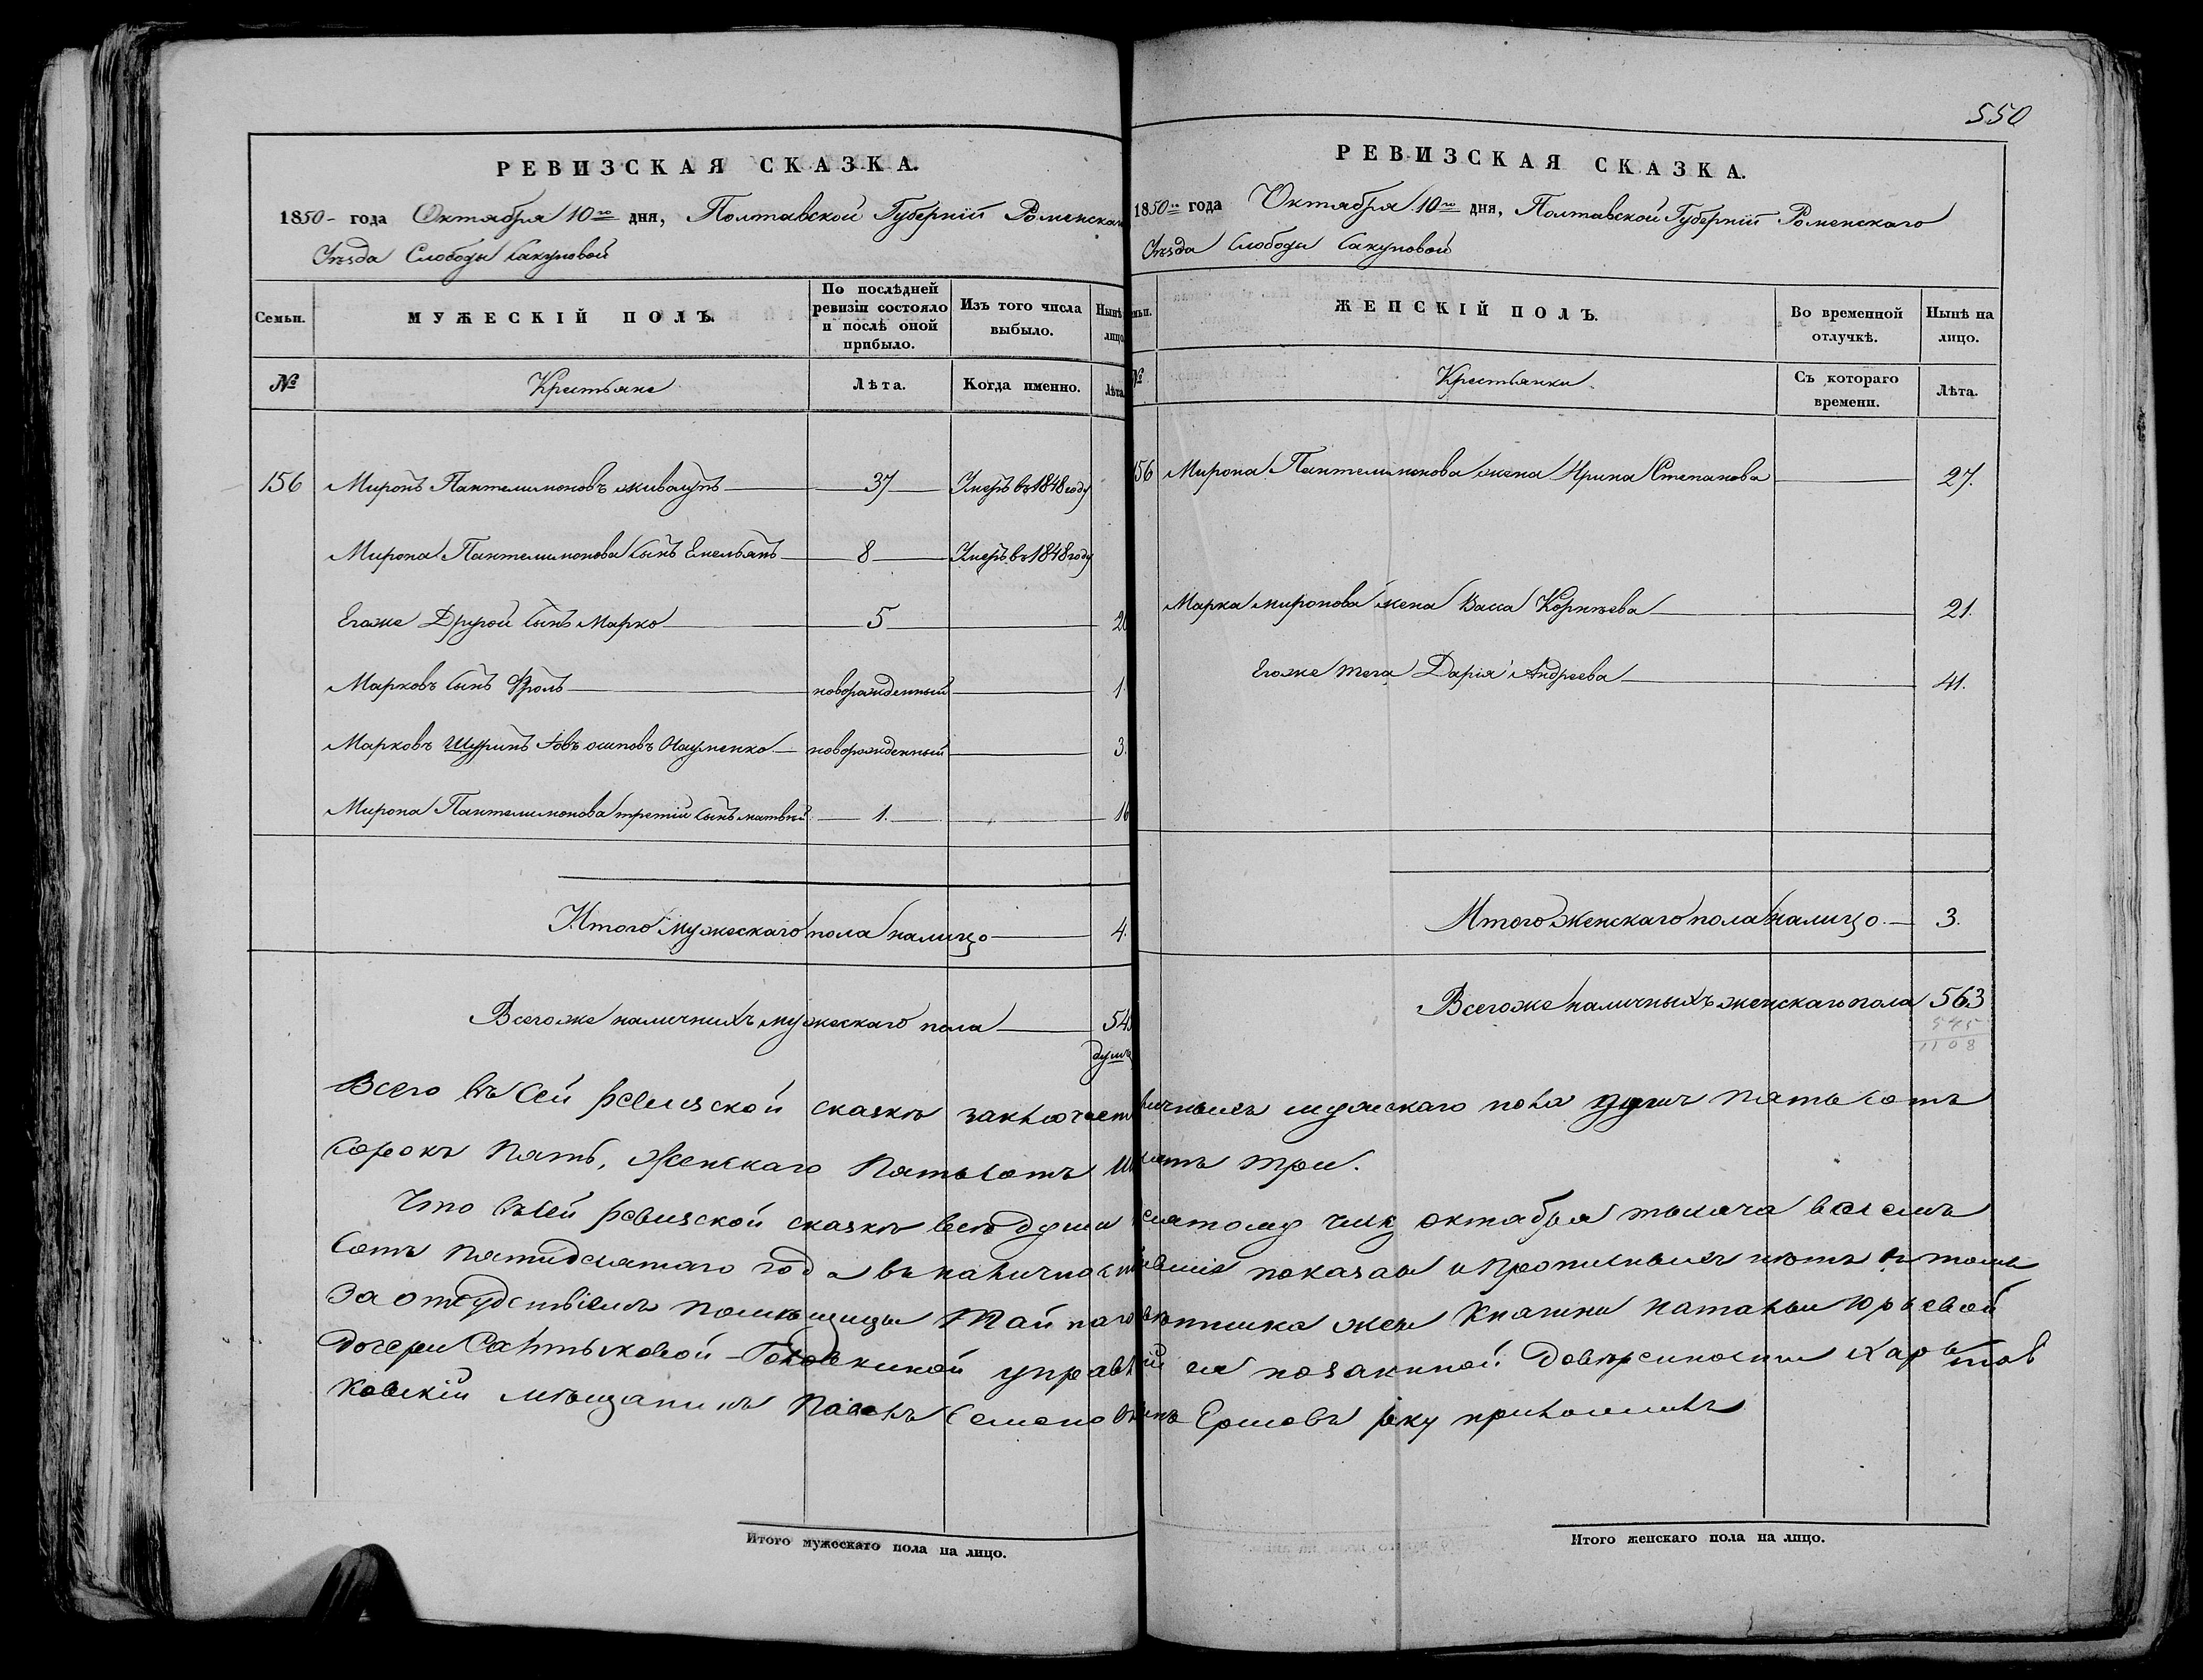 РЕВИЗСКАЯ СКАЗКА.
1850- года Октября 10го дня, Полтавской Губерніи Роменскаго
Уѣзда Слободы Сакуновой
Семьи.
МУЖЕСКІЙ ПОЛЪ.
По послѣдней ревизіи состояло и послѣ оной прибыло.
Изъ того числа выбыло.
Нынѣ лицо
№
Крестьяне
Лѣта.
Когда именно.
Лѣта
156 Миронъ Пантелимоновъ 37 Умеръ въ 1848 году
Мирона Пантелимонова сынъ Емельянъ 8 Умеръ въ 1848 году
Егоже Другой сынъ Марко 5 20
Марковъ сынъ Фролъ новорожденный 1.
Марковъ Шуринъ Іовъ осиповъ Науменко новорожденный 3.
Мирона Пантелимонова третій сынъ матвѣй 1. 16
Итого мужескаго пола налицо 4.
Всегоже наличныхъ мужескаго пола 545
душъ
550
РЕВИЗСКАЯ СКАЗКА.
1850го года Октября 10го дня, Полтавской Губерніи Роменскаго
Уѣзда Слободы Сакуновой
мьи.
ЖЕНСКІЙ ПОЛЪ.
Во временной отлучкѣ.
Нынѣ на лицо.
№
Крестьянки.
Съ котораго времени.
Лѣта.
156 Мирона Пантелимонова жена Ирина Степанова 27.
Марка миронова жена Васса Корнѣева 21.
Егоже теща Дарія Андреева 41.
Итого женскаго пола налицо 3.
Всегоже наличныхъ женскаго пола 563
545
1108
Всего въ сей ревизской сказкѣ заключает личныхъ мужскаго пола душъ пять сотъ
сорокъ пять, женскаго пятьсотъ ш сятъ три.
Что въ сей ревизской сказкѣ всѣ души десятому числу октября тысяча восемь
сотъ пятидесятаго года въ наличности показаны и прописныхъ нѣтъ въ томъ
За отсудствіемъ помѣщицы Тайнаго вѣтника жены Княгини натальи юрьевой
дочери Салтыковой-Головкиной управл ій ея по законной довѣренности Харь
ковскій мѣщанинъ Павелъ Семено вынъ Ершовъ руку приложилъ
Итого мужескаго пола на лицо.
Итого женскаго пола на лицо.